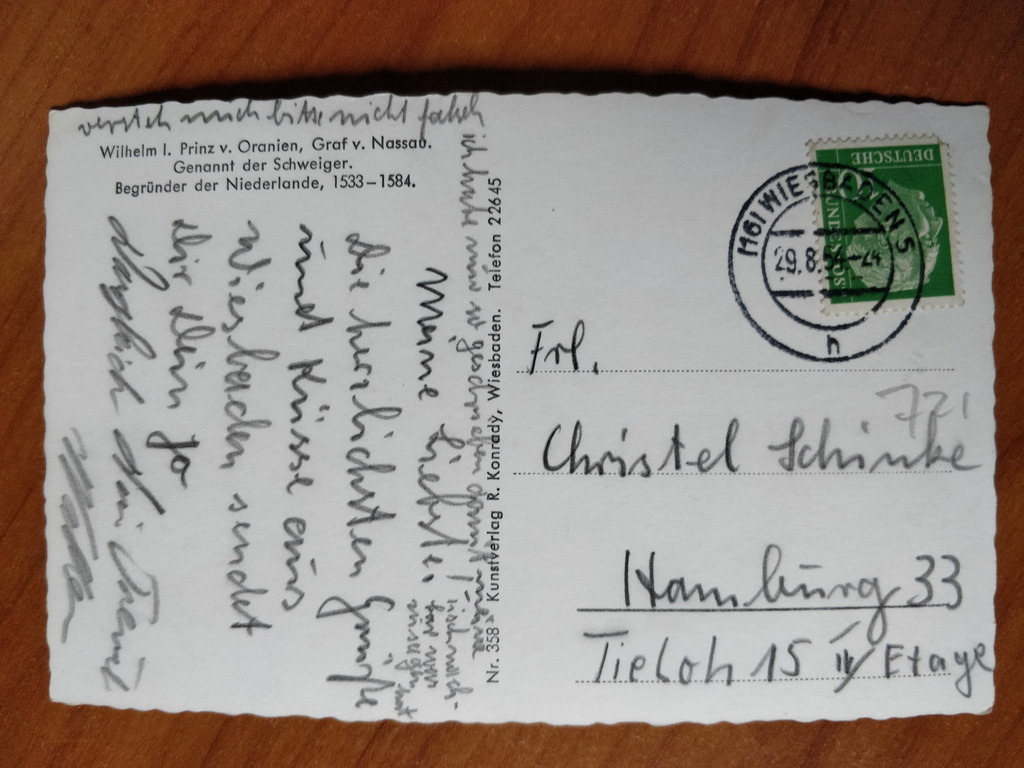 versteh mich bitte nicht falsch
Wilhelm I. Prinz v. Oranien, Graf v. Nassau.
Genannt der Schweiger.
Begründer der Niederlande, 1533–1584.
Meine Liebste.
Die herzlichsten Grüße
und Küsse aus
Wiesbaden sendet
Dir Dein Jo
Herzlich
ich habe nur so geschrieben damit meine
Nr. 358 Kunstverlag R. Konrady, Wiesbaden. Telefon 22645
DEUTSCHE
BUNDESPOST
(16) WIESBADEN 5
29.8.54-24
n
Frl.
721
Christel Schinke
Hamburg 33
Tieloh 15 IV Etage